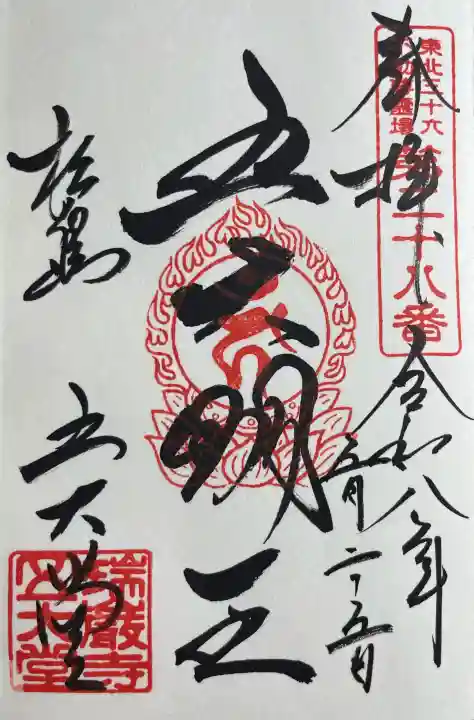 奉拝
東北三十六
不動尊霊場
第二十八番
令和八年
五月二十五日
五大明王
松島
五大堂
瑞巌寺
五大堂